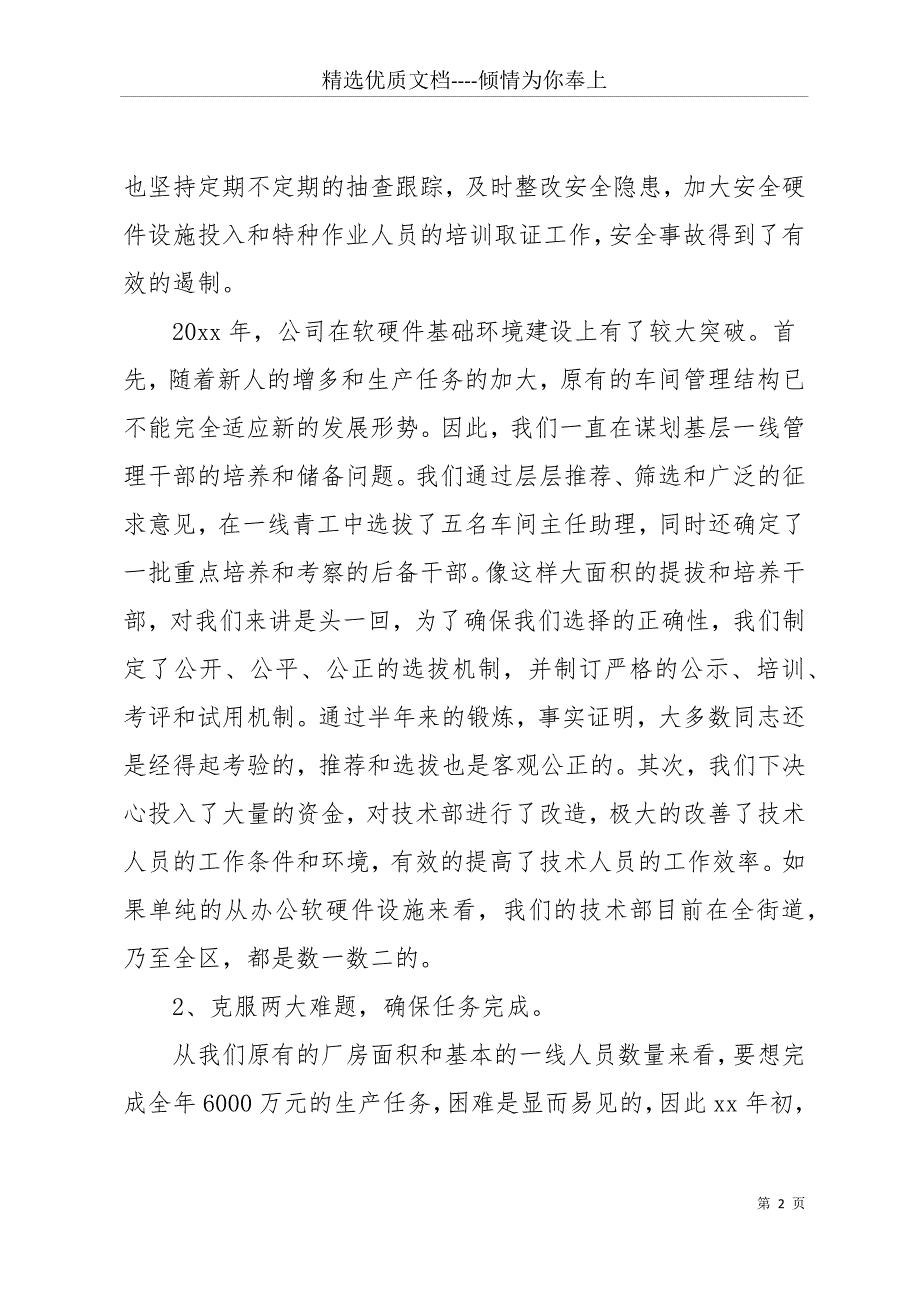 精选优质文档----倾情为你奉上
也坚持定期不定期的抽查跟踪，及时整改安全隐患，加大安全硬
件设施投入和特种作业人员的培训取证工作，安全事故得到了有
效的遏制。
20xx 年，公司在软硬件基础环境建设上有了较大突破。首
先，随着新人的增多和生产任务的加大，原有的车间管理结构已
不能完全适应新的发展形势。因此，我们一直在谋划基层一线管
理干部的培养和储备问题。我们通过层层推荐、筛选和广泛的征
求意见，在一线青工中选拔了五名车间主任助理，同时还确定了
一批重点培养和考察的后备干部。像这样大面积的提拔和培养干
部，对我们来讲是头一回，为了确保我们选择的正确性，我们制
定了公开、公平、公正的选拔机制，并制订严格的公示、培训、
考评和试用机制。通过半年来的锻炼，事实证明，大多数同志还
是经得起考验的，推荐和选拔也是客观公正的。其次，我们下决
心投入了大量的资金，对技术部进行了改造，极大的改善了技术
人员的工作条件和环境，有效的提高了技术人员的工作效率。如
果单纯的从办公软硬件设施来看，我们的技术部目前在全街道，
乃至全区，都是数一数二的。
2、克服两大难题，确保任务完成。
从我们原有的厂房面积和基本的一线人员数量来看，要想完
成全年 6000 万元的生产任务，困难是显而易见的，因此 xx 年初，
第 2 页